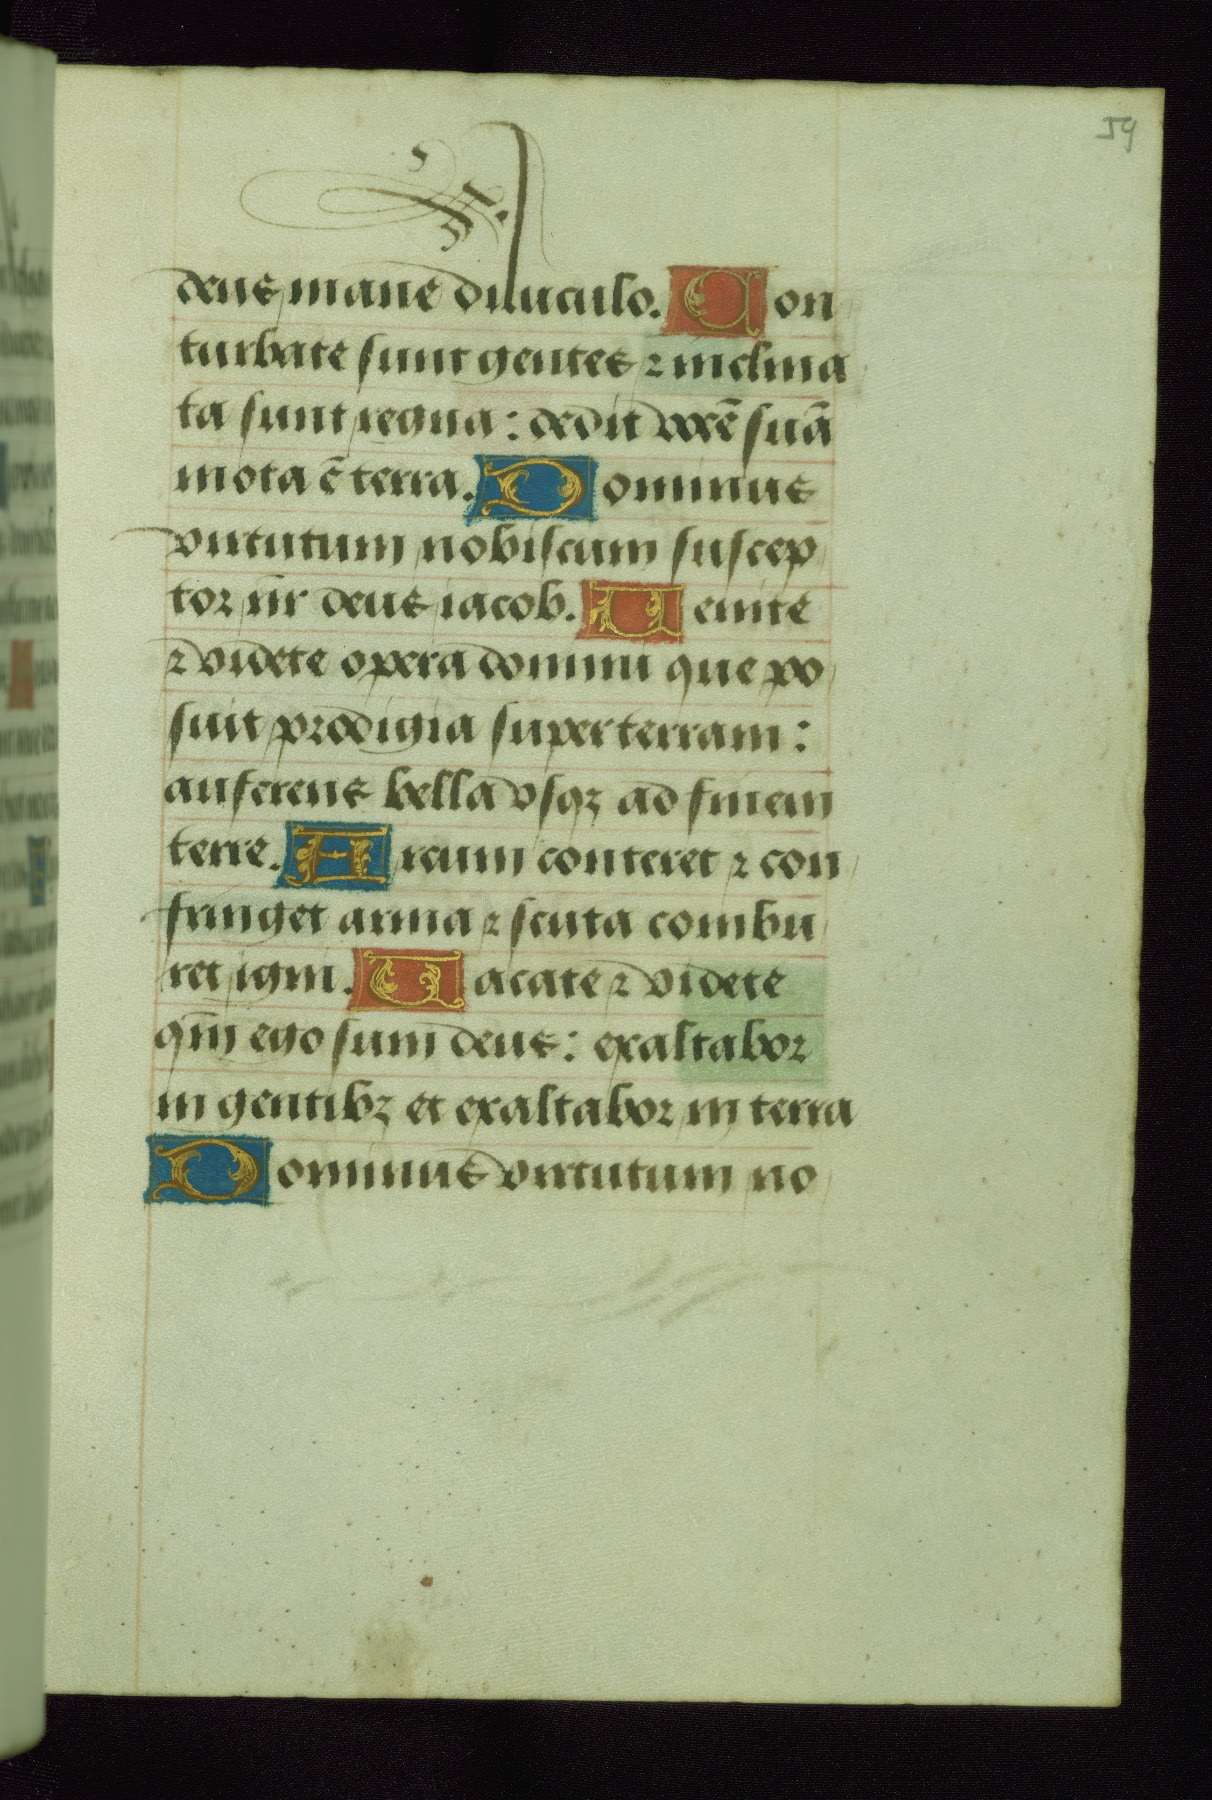 59
deus mane diluculo. Con
turbate sunt gentes ⁊ inclina
ta sunt regna: dedit vocē suā
mota ē terra. Dominus
virtutum nobiscum suscep
tor nr̄ deus iacob. Uenite
⁊ videte opera domini que po
suit prodigia super terram:
auferens bella vsqꝫ ad finem
terre. Arcum conteret ⁊ con
fringet arma ⁊ scuta combu
ret igni. Uacate ⁊ videte
qm̄ ego sum deus: exaltabor
in gentibꝫ et exaltabor in terra
Dominus virtutum no